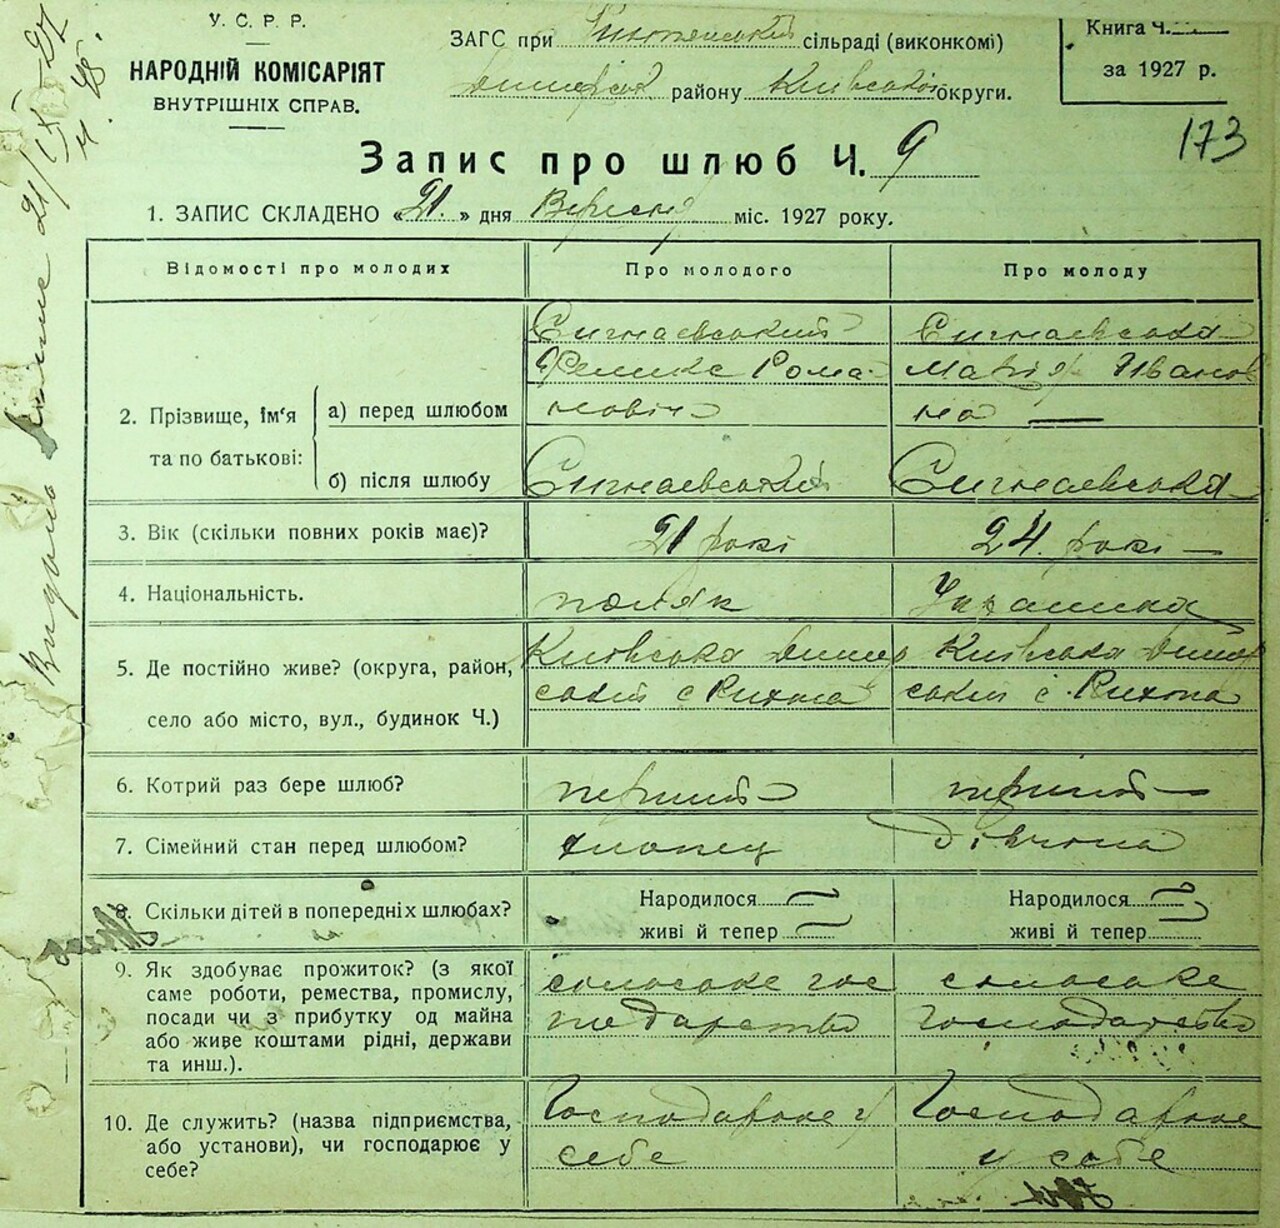 У. С. Р. Р.
НАРОДНІЙ КОМІСАРІЯТ
ВНУТРІШНІХ СПРАВ.
ЗАГС при сільраді (виконкомі)
Димерськ району Київської округи.
Книга Ч.
за 1927 р.
173
Запис про шлюб Ч. 9
1. ЗАПИС СКЛАДЕНО «21» дня Вересня міс. 1927 року.
Відомості про молодих
Про молодого
Про молоду
2. Прізвище, ім'я та по батькові:
а) перед шлюбом
Сигнаевський
Феликс Рома-
нович
Сигнаевська
Марія Іванов
на
б) після шлюбу
Сигнаевський
Сигнаевська
3. Вік (скільки повних років має)?
21 рокі
24. рокі
4. Національність.
поляк
Українка
5. Де постійно живе? (округа, район,
село або місто, вул., будинок Ч.)
Київська Димер
ський с Рихта
Київська Димер
ський с. Рихта
6. Котрий раз бере шлюб?
перший
перший
7. Сімейний стан перед шлюбом?
хлопец
дівчина
8. Скільки дітей в попередніх шлюбах?
Народилося
живі й тепер
Народилося
живі й тепер
9. Як здобуває прожиток? (з якої
саме роботи, ремества, промислу,
посади чи з прибутку од майна
або живе коштами рідні, держави
та инш.).
сельске гос
подарство
сельске
господарство
10. Де служить? (назва підприємства,
або установи), чи господарює у
себе?
Господарює у
себе
Господарює
у себе
Видано 21/IX-27